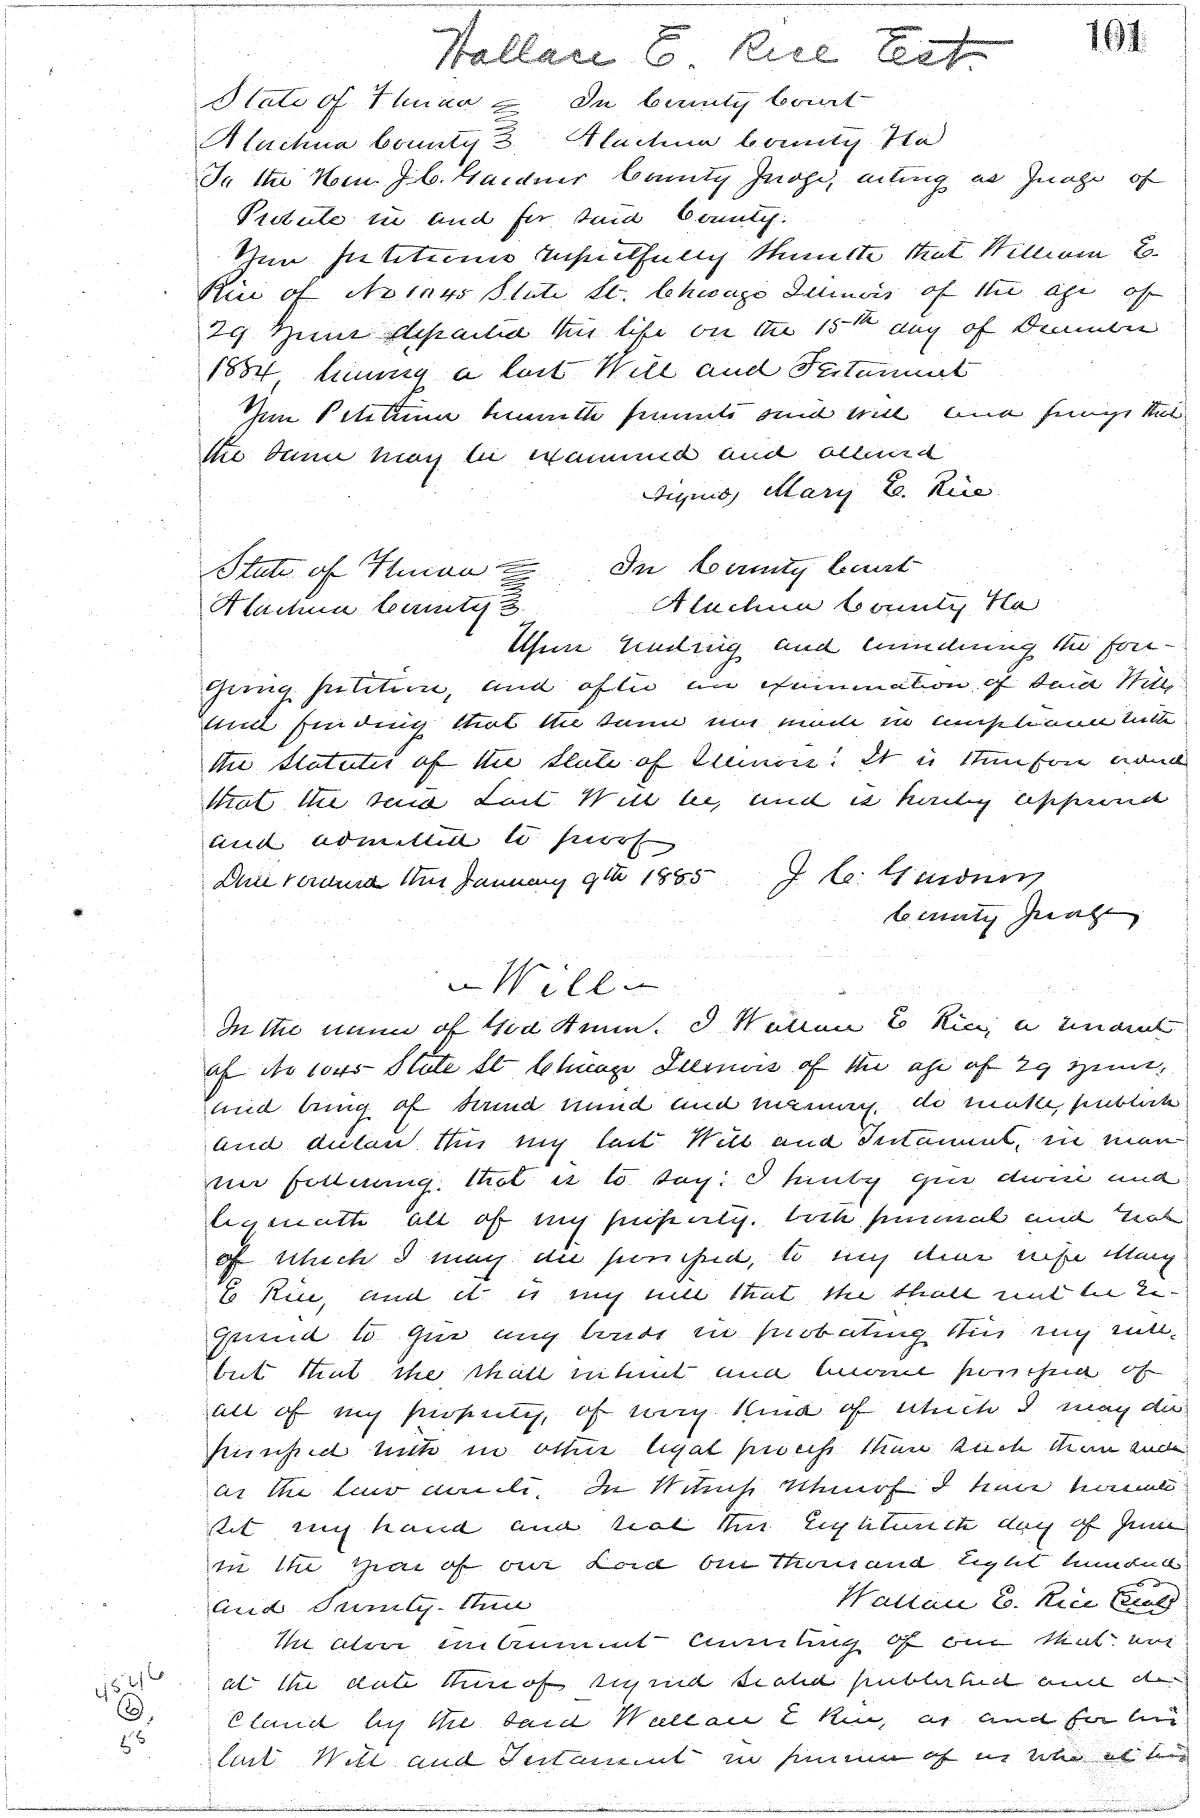 101
Wallace E. Rice Est.
State of Florida In County Court
Alachua County Alachua County Fla
To the Hon. J.C. Gardner County Judge, acting as Judge of
Probate in and for said County.
Your petitioner respectfully showeth that William E.
Rice of No 1045 State St. Chicago Illinois of the age of
29 years departed this life on the 15th day of December
1884, leaving a last Will and Testament
Your Petitioner herewith presents said will and prays that
the same may be examined and allowed
signed, Mary E. Rice
State of Florida In County Court
Alachua County Alachua County Fla
Upon reading and considering the fore-
going petition, and after an examination of said Will,
and finding that the same was made in compliance with
the statutes of the State of Illinois: It is therefore ordered
that the said Last Will be, and is hereby approved
and admitted to proof
Done & ordered this January 9th 1885 J C. Gardner
County Judge
- Will -
In the name of God Amen. I Wallace E Rice, a resident
of No 1045 State St Chicago Illinois of the age of 29 years,
and being of sound mind and memory, do make, publish
and declare this my last Will and Testament, in man
ner following. that is to say: I hereby give devise and
bequeath all of my property. both personal and real
of which I may die possessed, to my dear wife Mary
E Rice, and it is my will that she shall not be re-
quired to give any bonds in probating this my will,
but that she shall inherit and become possessed of
all of my property, of every kind of which I may die
possessed with no other legal process than such than such
as the law directs. In Witness Whereof I have hereunto
set my hand and seal this Eighteenth day of June
in the year of our Lord one thousand Eight hundred
and Seventy-three Wallace E. Rice (Seal)
The above instrument consisting of one sheet was
at the date thereof signed sealed published and de-
clared by the said Wallace E Rice, as and for his
last Will and Testament in presence of us who at his
4546
58